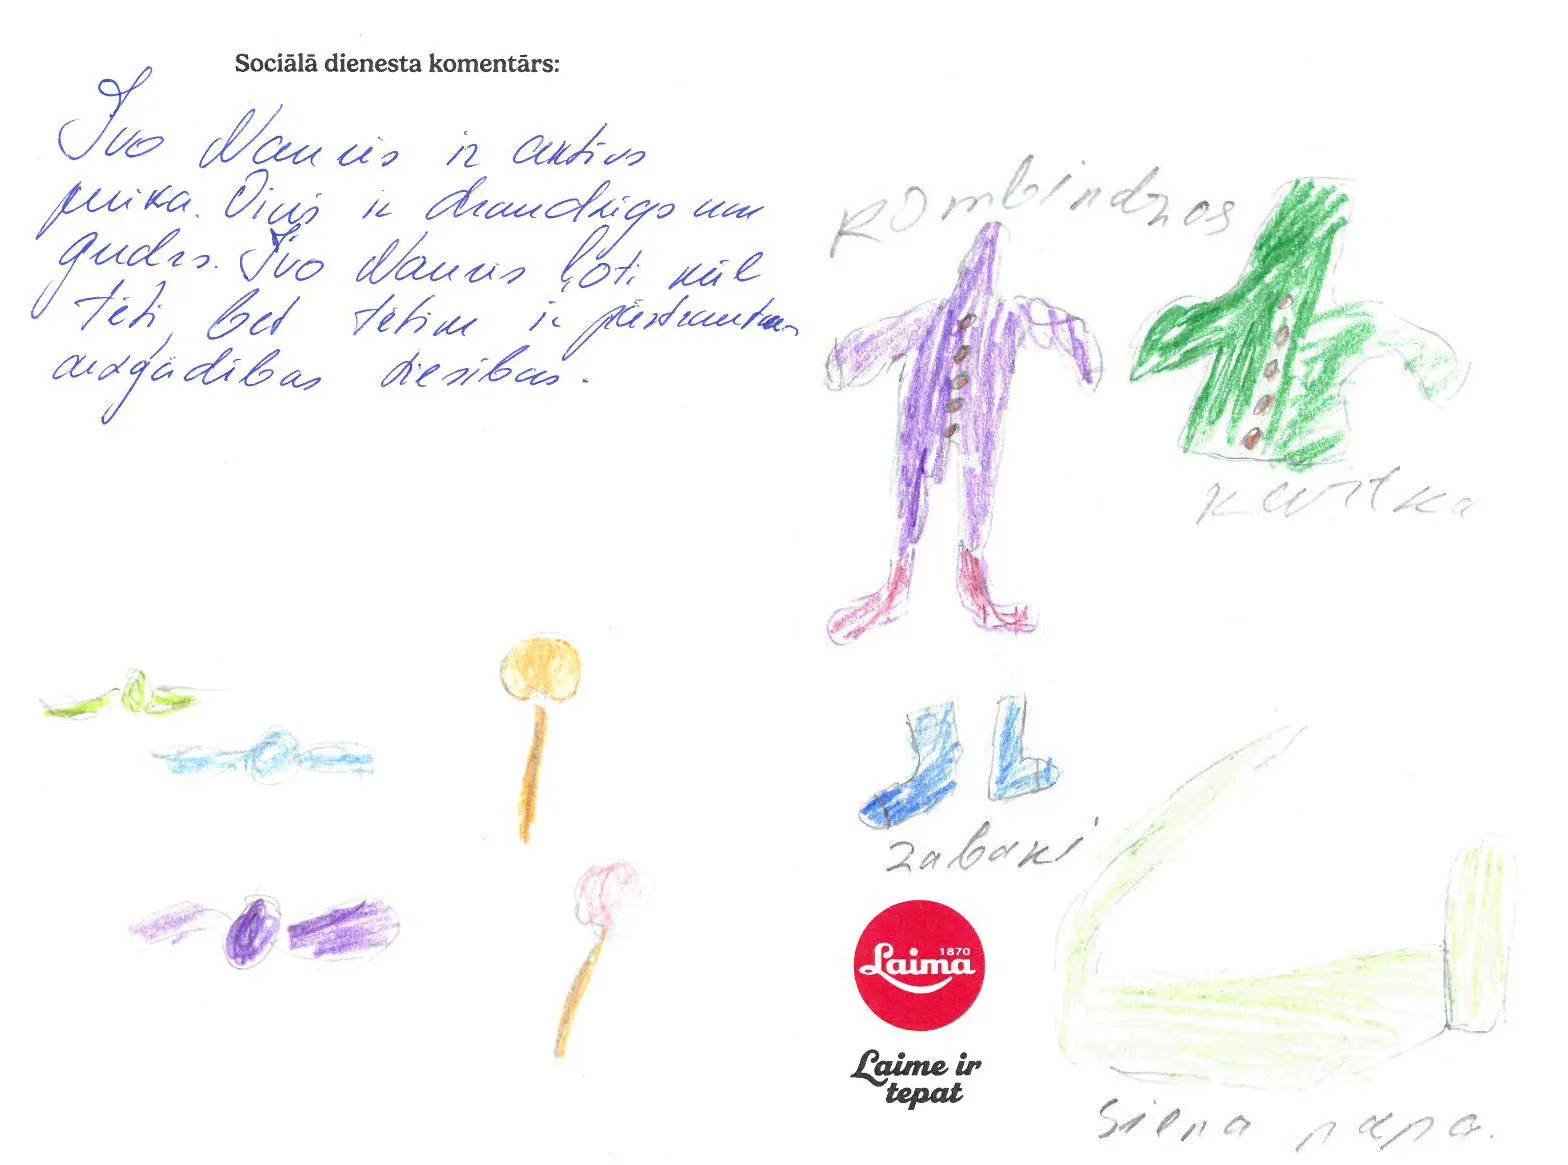 Sociālā dienesta komentārs:
Ivo Nauris ir aktīvs
puika. Viņš ir draudzīgs un
gudrs. Ivo Nauris ļoti mīl
tēti, bet tētim ir pārtrauktas
aizgādības tiesības.
kombindzos
kurtka
zabaki
1870
Laima
Laime ir
tepat
siena papa.